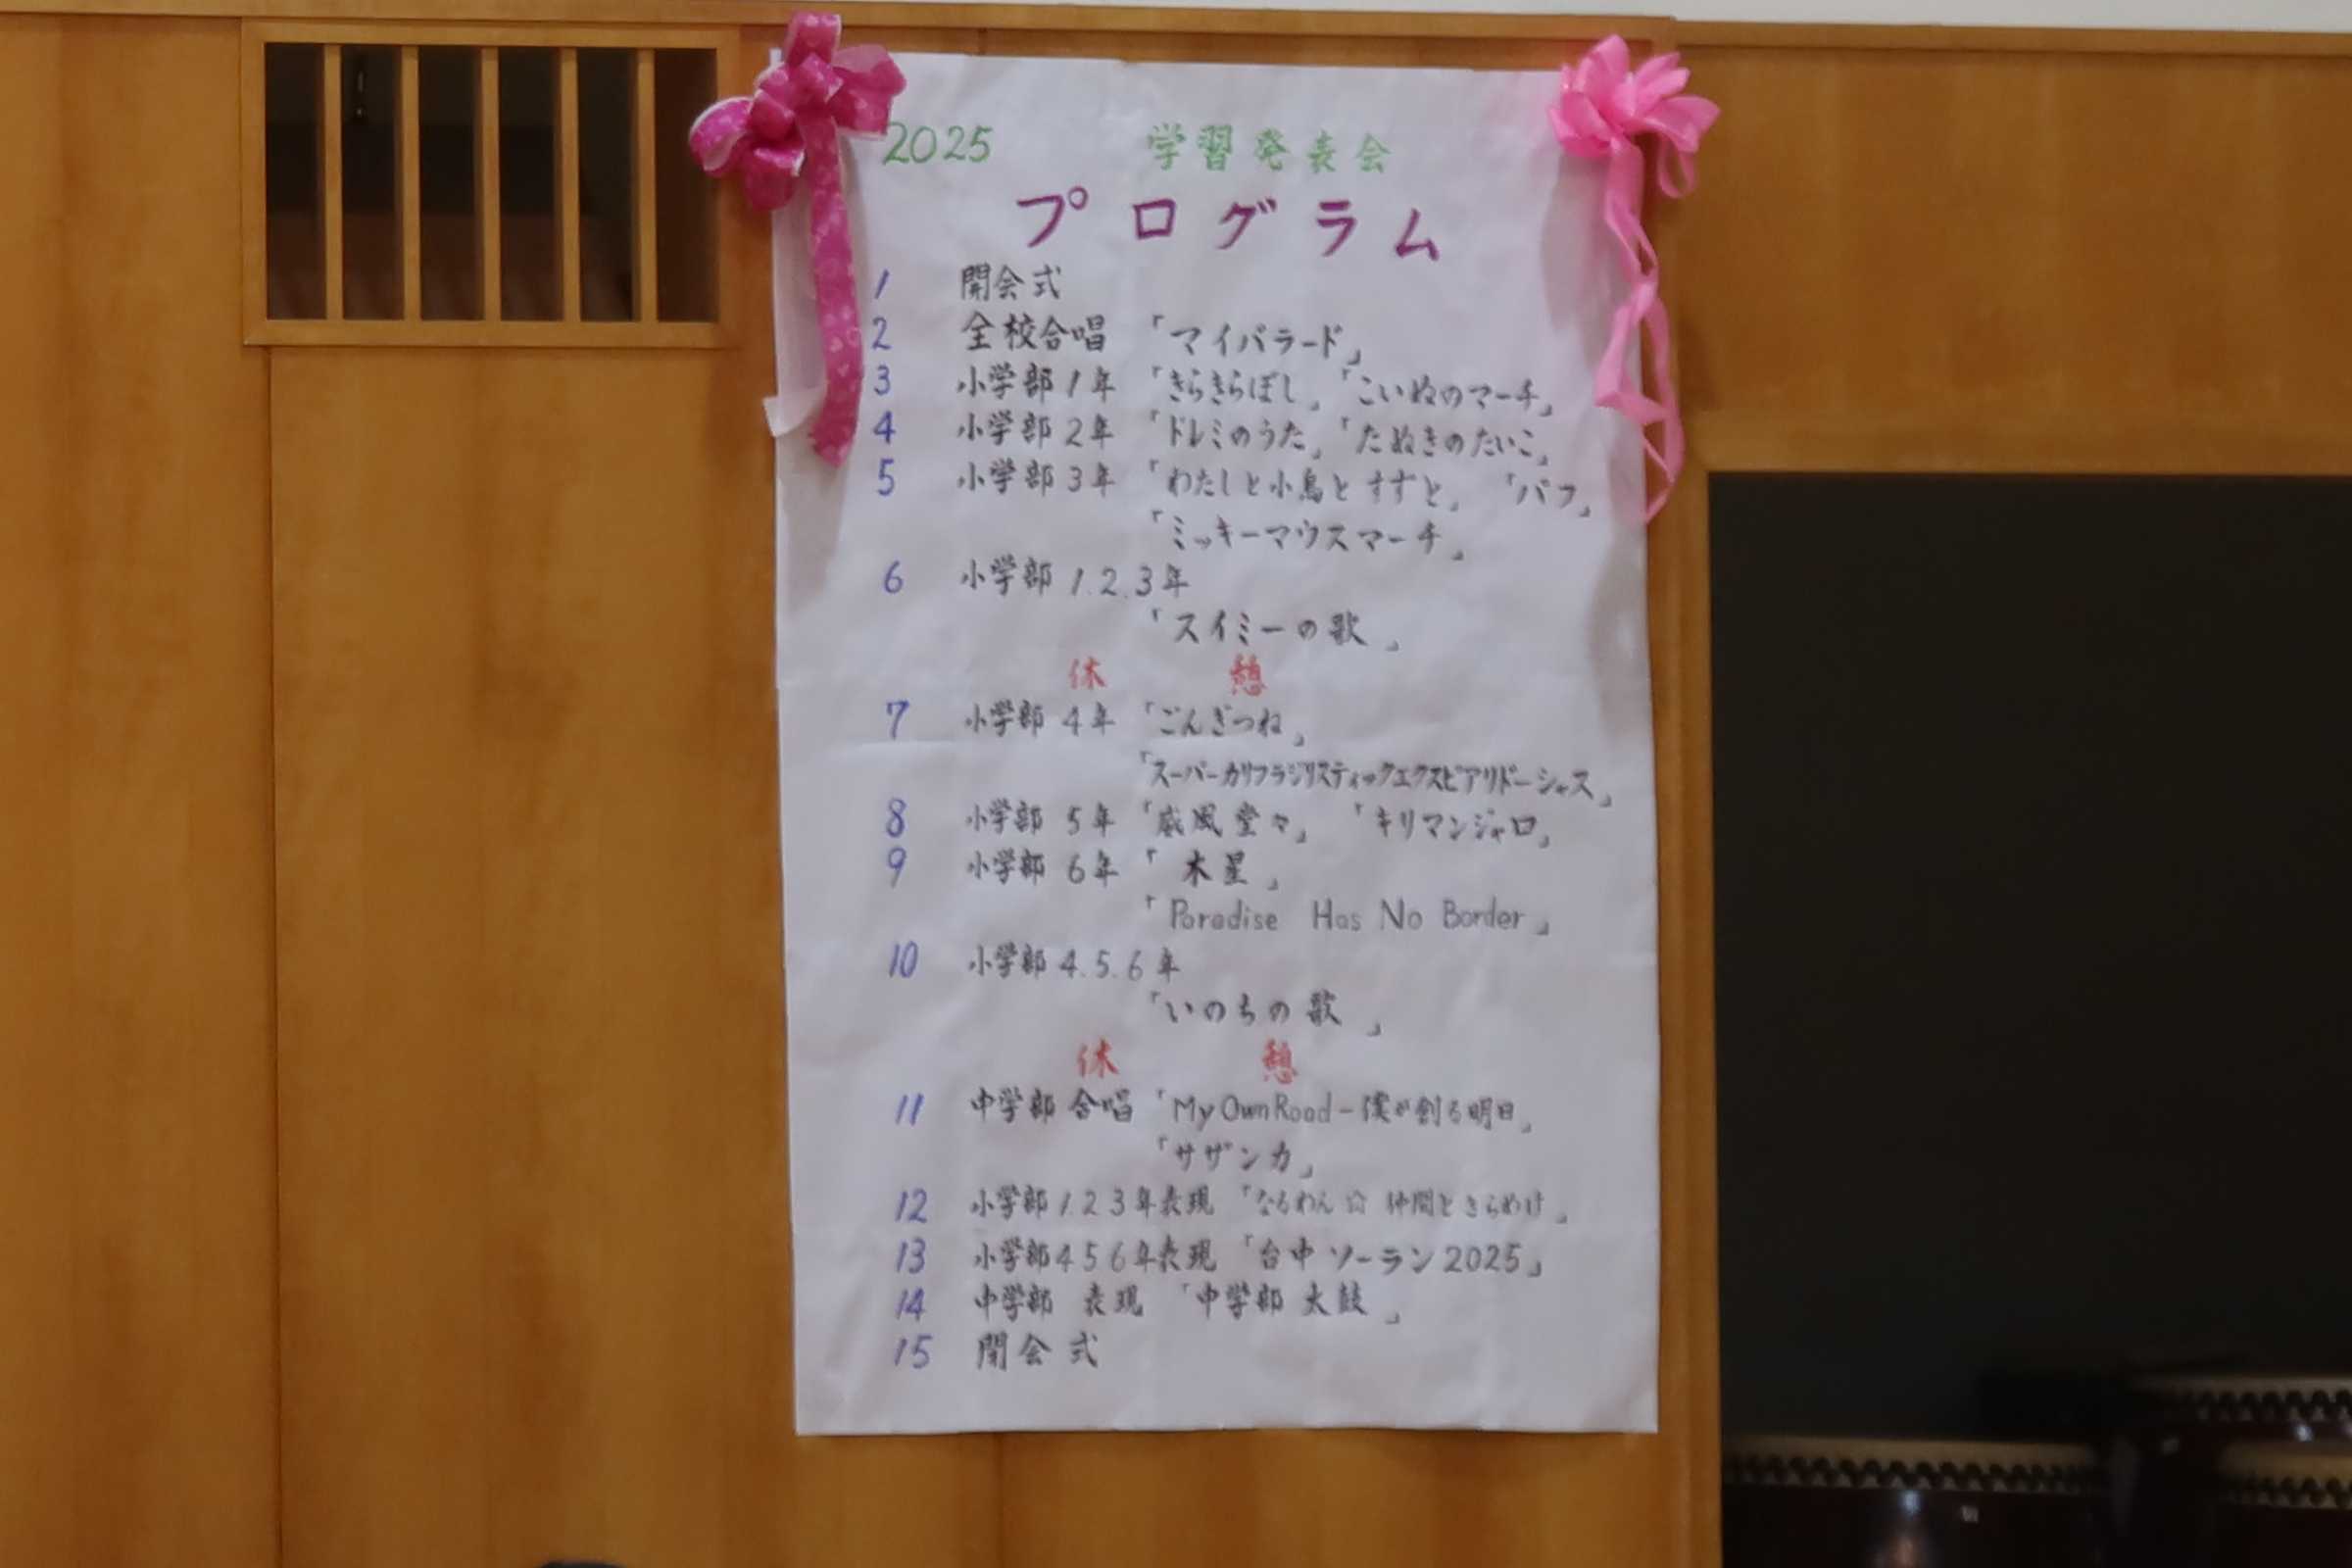 2025 学習発表会
プログラム
1 開会式
2 全校合唱 「マイバラード」
3 小学部1年 「きらきらぼし」「こいぬのマーチ」
4 小学部2年 「ドレミのうた」「たぬきのたいこ」
5 小学部3年 「わたしと小鳥とすずと」 「パフ」
「ミッキーマウスマーチ」
6 小学部 1.2.3年
「スイミーの歌」
休 憩
7 小学部 4年 「ごんぎつね」
「スーパーカリフラジリスティックエクスピアリドーシャス」
8 小学部 5年 「威風堂々」 「キリマンジャロ」
9 小学部 6年 「木星」
「Paradise Has No Border」
10 小学部 4.5.6年
「いのちの歌」
休 憩
11 中学部 合唱 「My Own Road-僕が創る明日」
「サザンカ」
12 小学部 1.2 3年表現 「なるわん☆ 仲間ときらめけ」
13 小学部 4 5 6年表現 「台中ソーラン2025」
14 中学部 表現 「中学部 太鼓」
15 閉会式